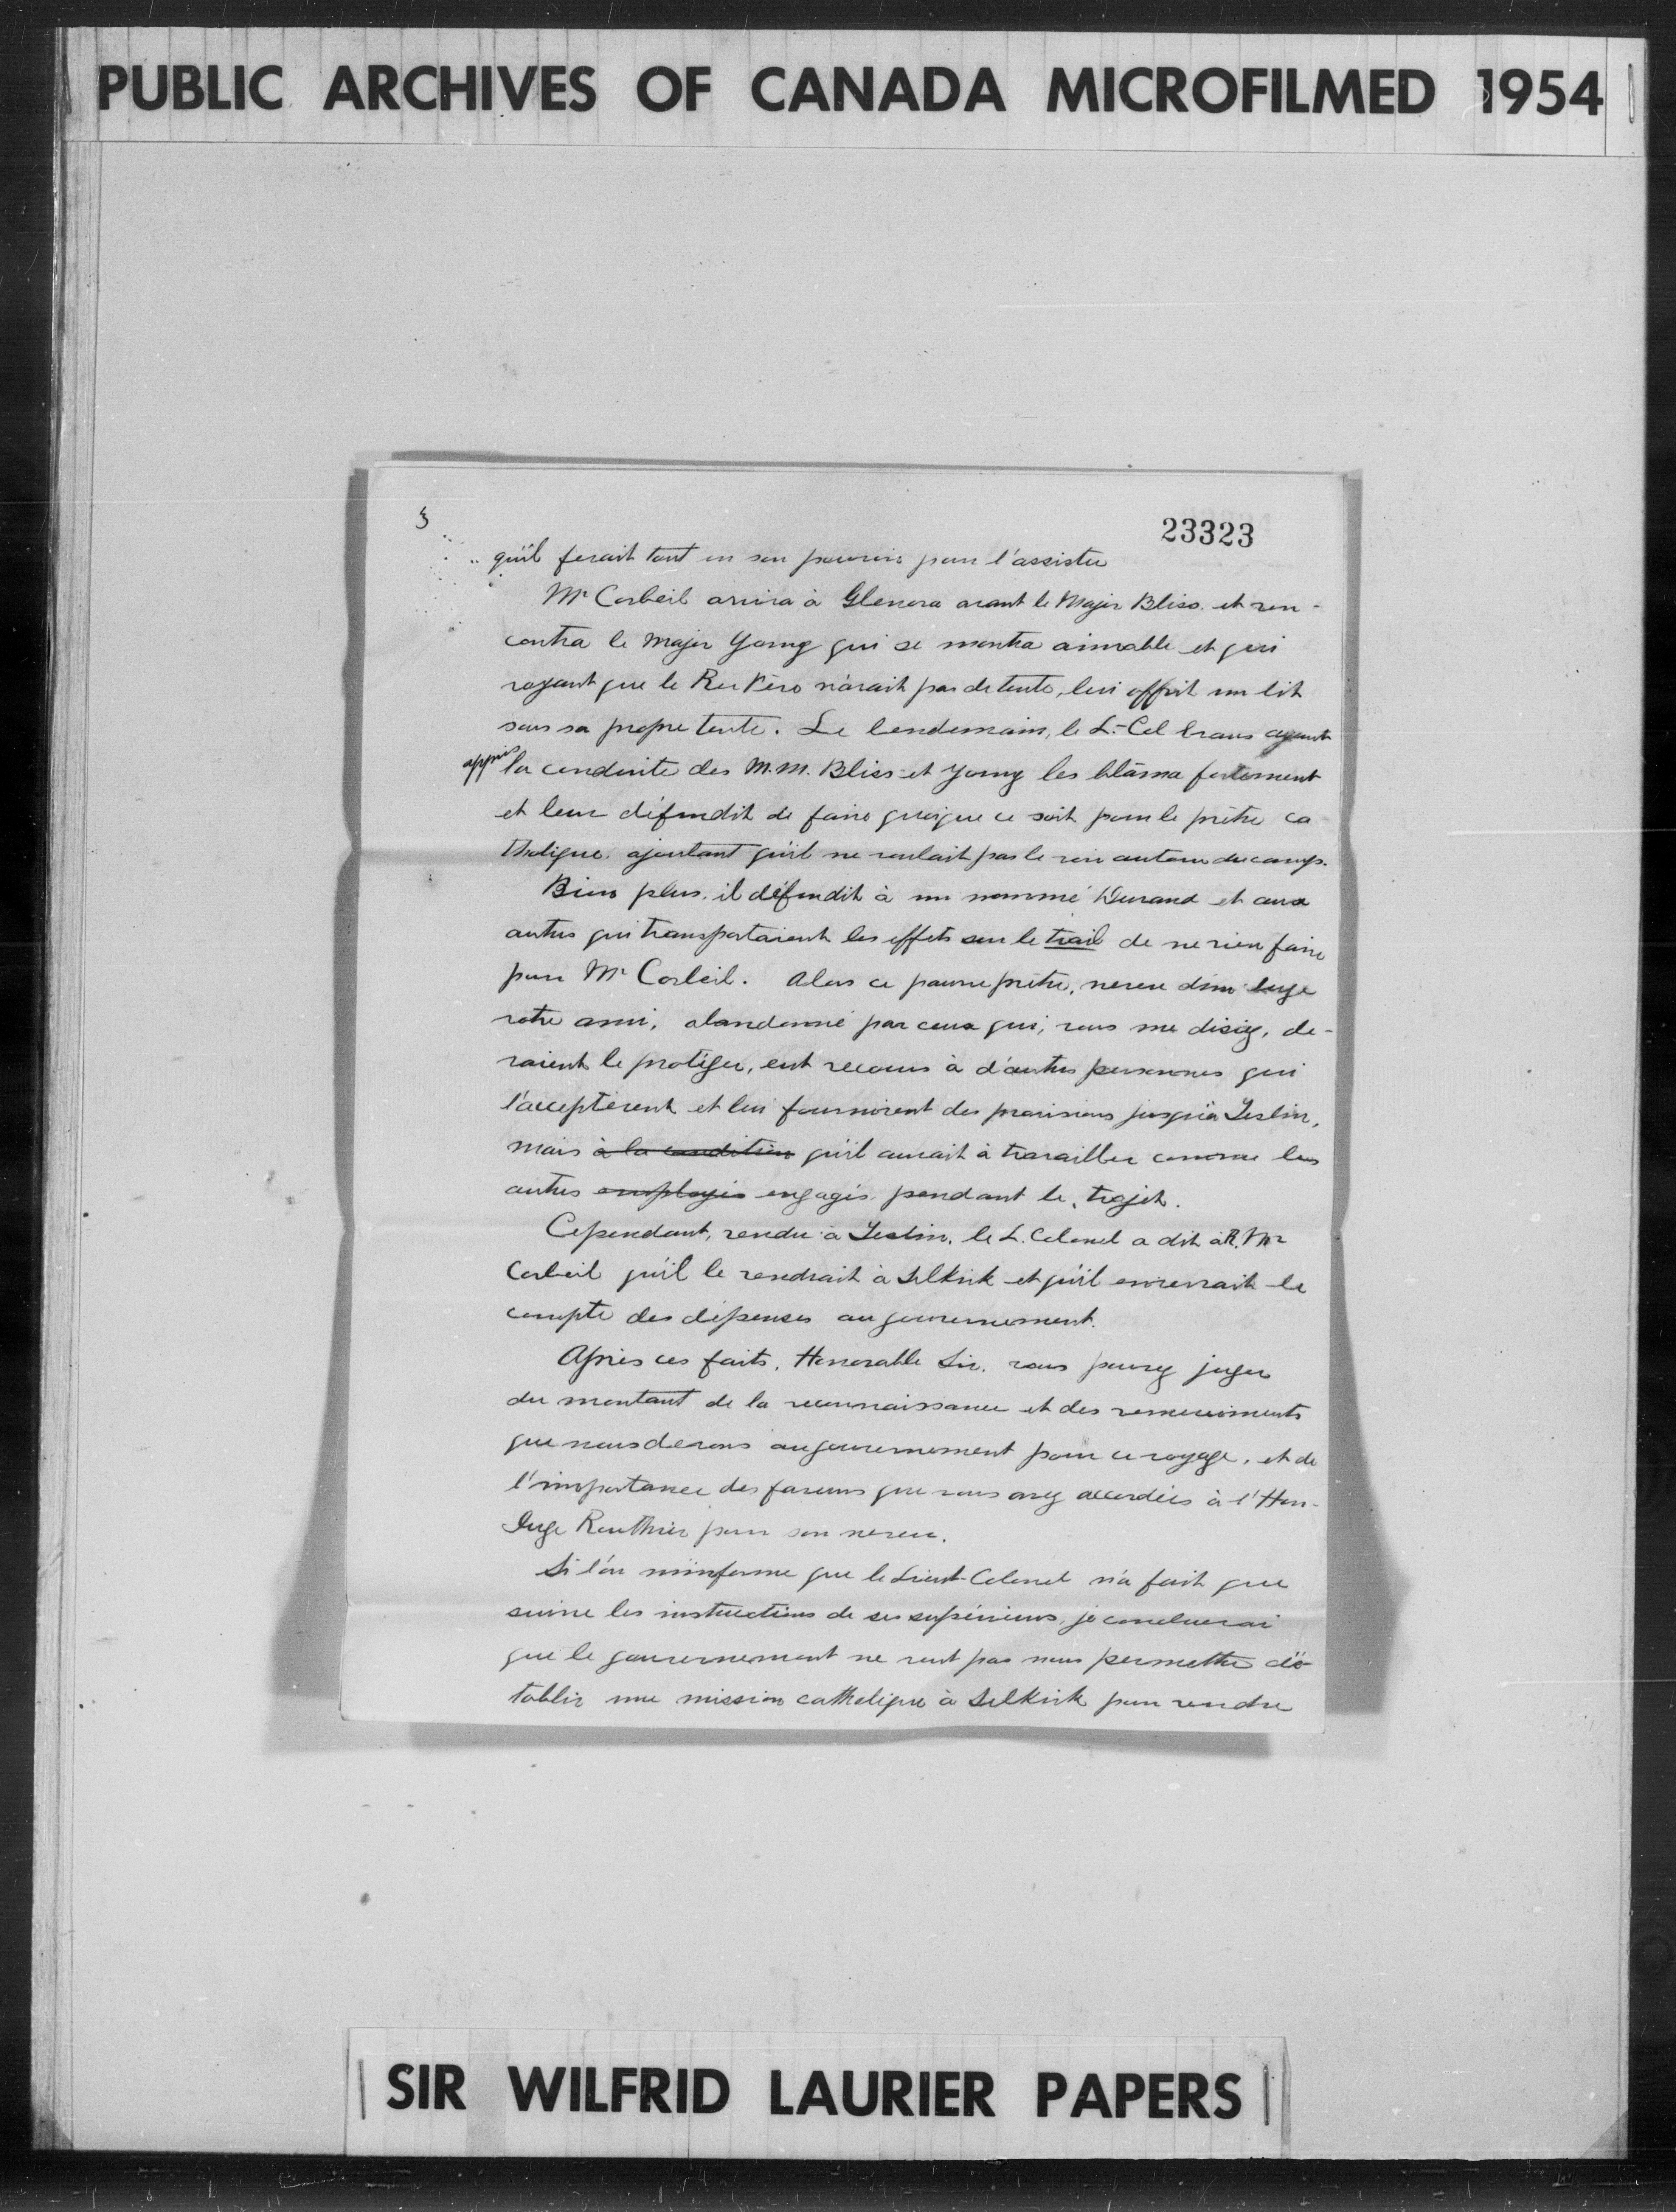 PUBLIC ARCHIVES OF CANADA MICROFILMED 1954
3
23323
qu'il ferait tout en son pouvoir pour l'assister
Mr Corbeil arriva à Glenora avant le Major Bliss et ren-
contra le Major Young qui se montra aimable et qui
voyant que le Rev Père n'avait pas de tente, lui offrit un lit
sous sa propre tente. Le lendemain, le L.-Col Evans ayant
appris la conduite des M.M. Bliss et Young les blâma fortement
et leur défendit de faire quoique ce soit pour le prêtre ca
tholique. ajoutant qu'il ne voulait pas le voir autour du camp.
Bien plus, il défendit à un nommé Durand et aux
autres qui transportaient les effets sur le trail de ne rien faire
pour Mr Corbeil. Alors ce pauvre prêtre, neveu d'un Juge
votre ami, abandonné par ceux qui, vous me disiez, de-
vaient le protéger, eut recours à d'autres personnes qui
l'acceptèrent et lui fournirent des provisions jusqu'à Teslin,
mais à la condition qu'il aurait à travailler comme les
autres employés engagés pendant le trajet.
Cependant, rendu à Teslin, le L. Colonel a dit à R. Mr
Corbeil qu'il le rendrait à Selkirk et qu'il enverrait le
compte des dépenses au gouvernement.
Après ces faits, Honorable Sir, vous pouvez juger
du montant de la reconnaissance et des remerciments
que nous devons au gouvernement pour ce voyage, et de
l'importance des faveurs que vous avez accordées à l'Hon-
Juge Routhier pour son neveu.
Si l'on m'informe que le Lieut-Colonel n'a fait que
suivre les instructions de ses supérieurs, je concluerai
que le gouvernement ne veut pas nous permettre d'é-
tablir une mission catholique à Selkirk pour rendre
SIR WILFRID LAURIER PAPERS